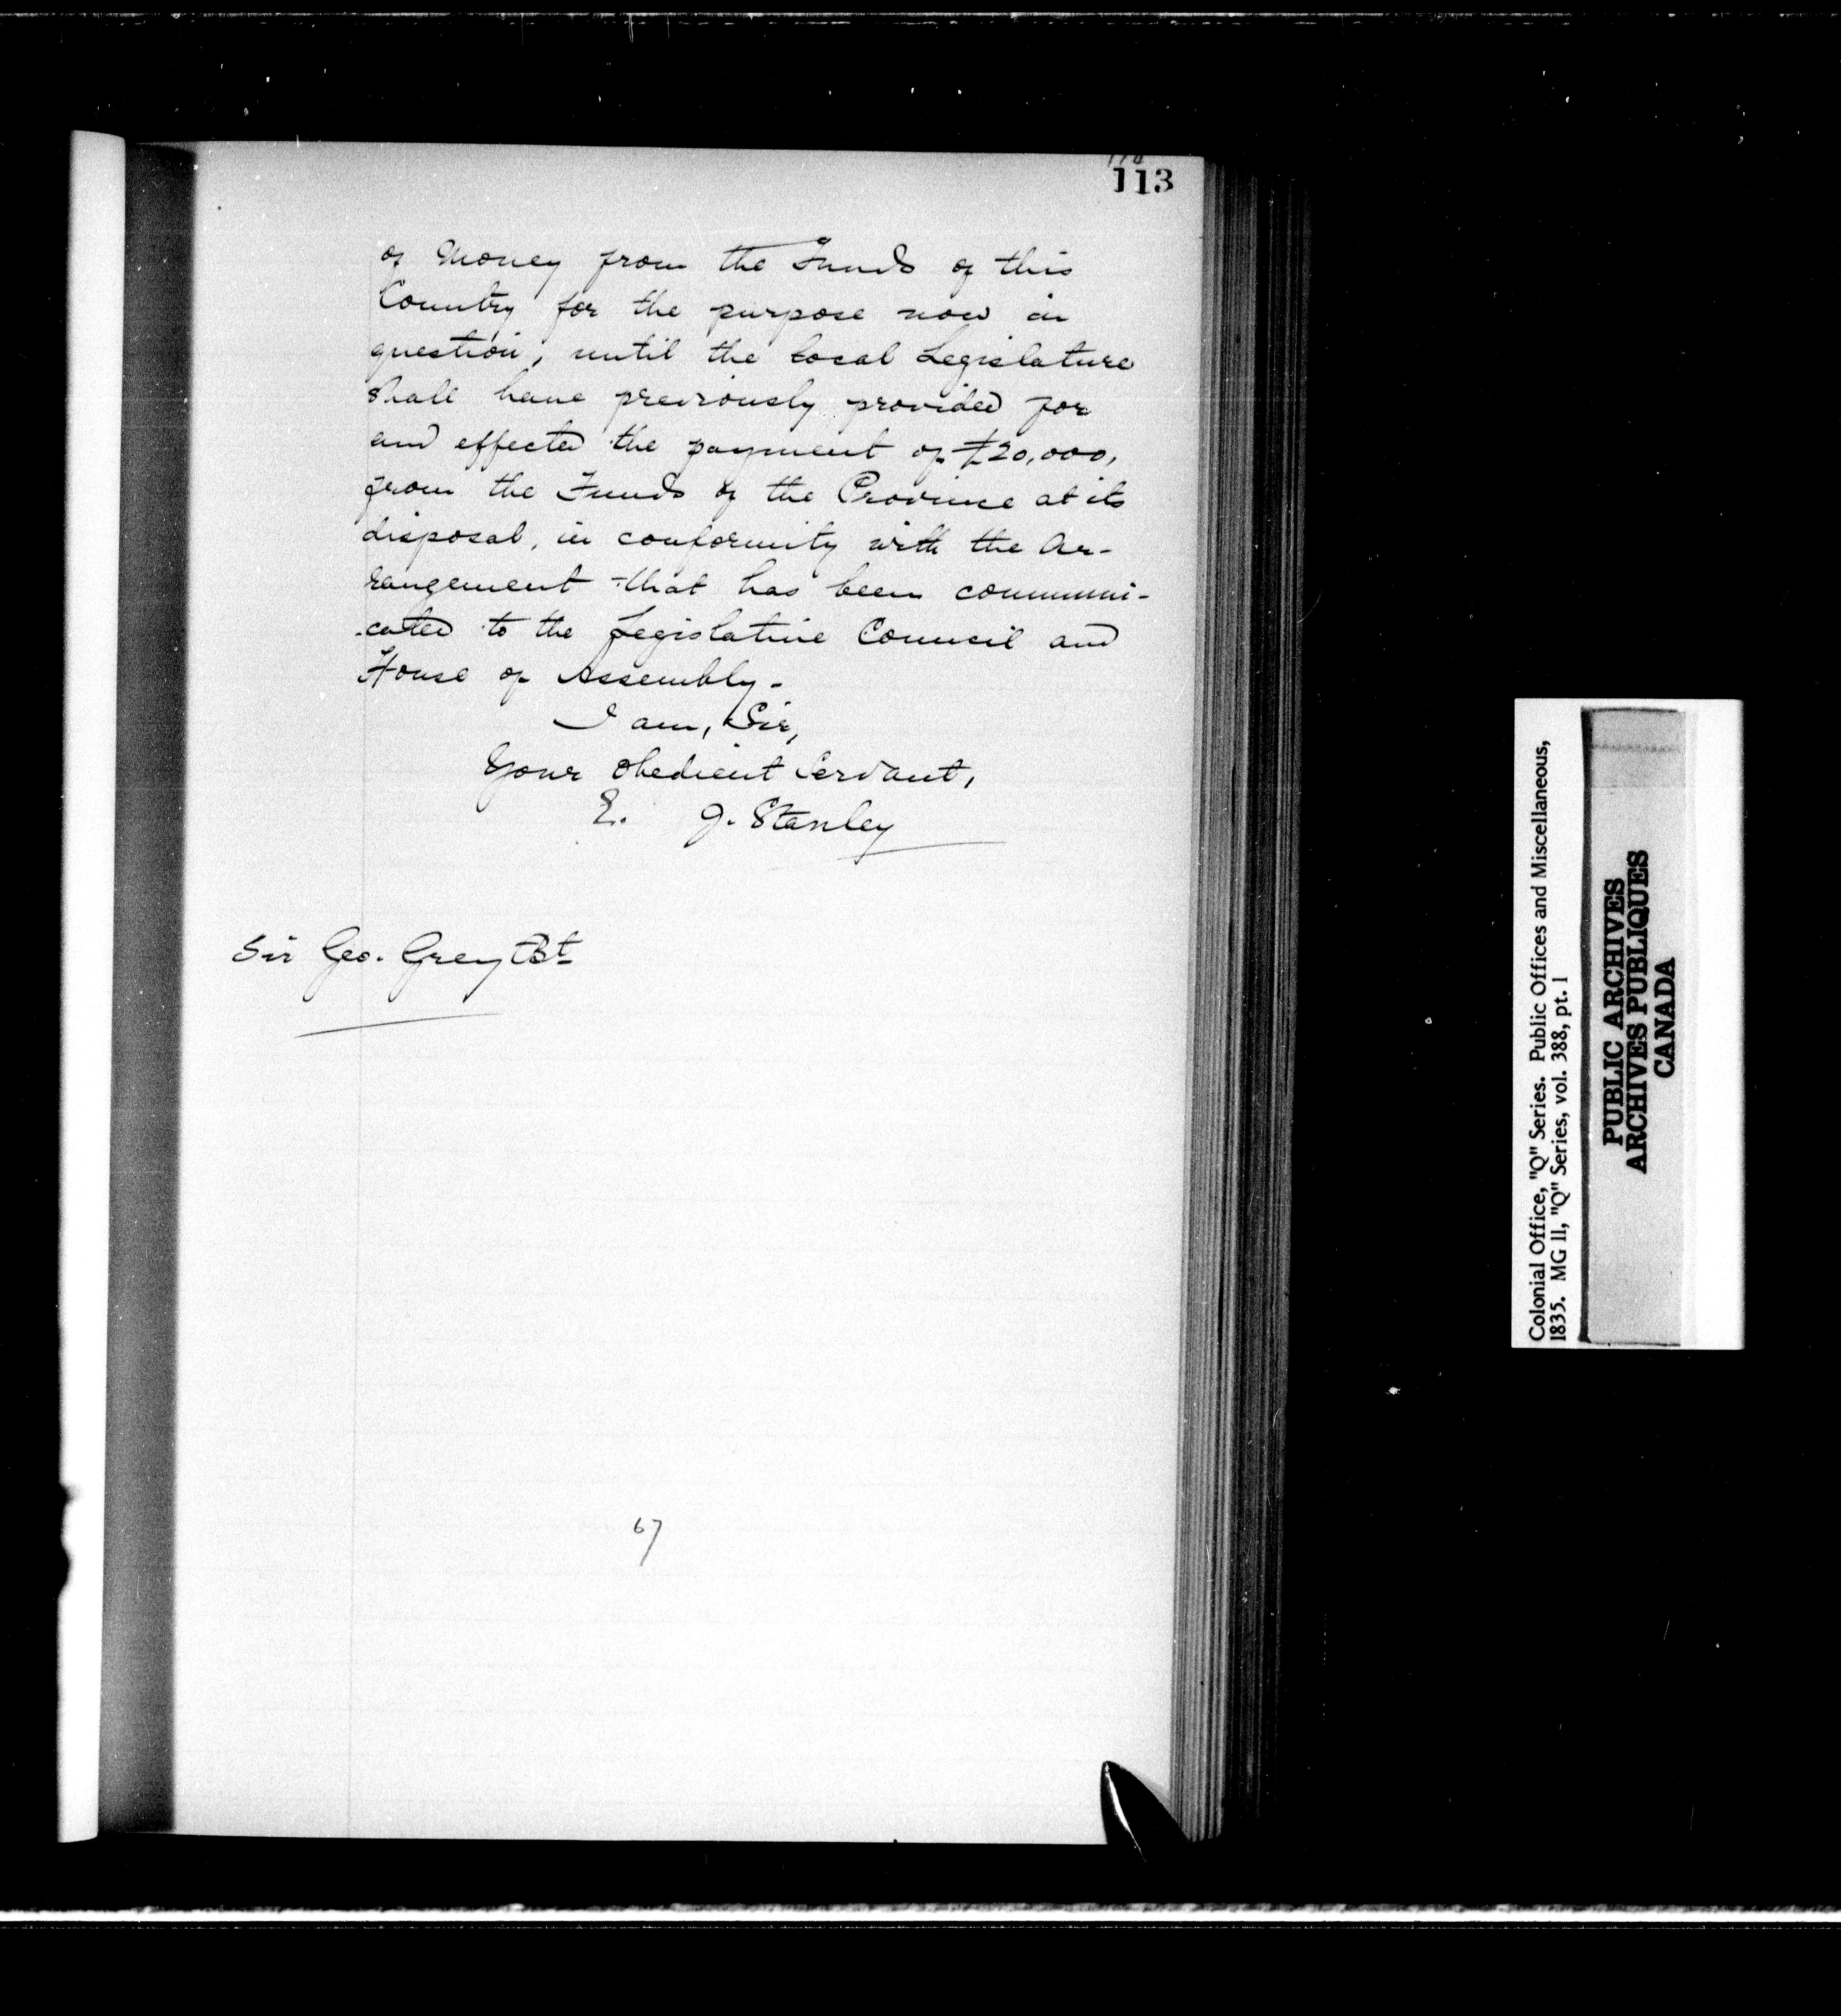 113
of Money from the Funds of this
Country for the purpose now in
question, until the Local Legislature
shall have previously provided for
and effected the payment of £20,000,
from the Funds of the Province at its
disposal, in conformity with the Ar-
rangement that has been communi-
cated to the Legislative Council and
House of Assembly.
I am, Sir,
Your Obedient Servant,
E. J. Stanley
Sir Geo. Grey Bt
67
Colonial Office, "Q" Series. Public Offices and Miscellaneous,
1835. MG 11, "Q" Series, vol. 388, pt. 1
PUBLIC ARCHIVES
ARCHIVES PUBLIQUES
CANADA